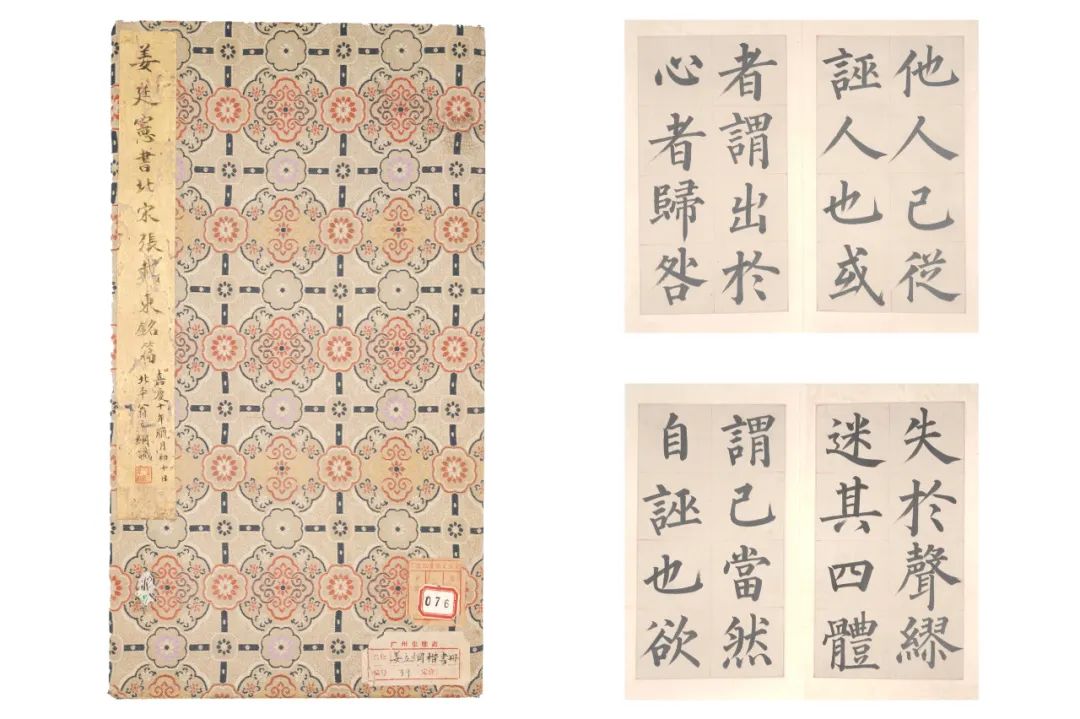 姜廷憲書北宋張載東銘篇
嘉慶十年臘月初
北平翁方綱識
076
广州
姜立綱楷書冊
编号 39 定价
他人己從
誣人也或
者謂出於
心者歸咎
失於聲繆
迷其四體
謂己當然
自誣也欲